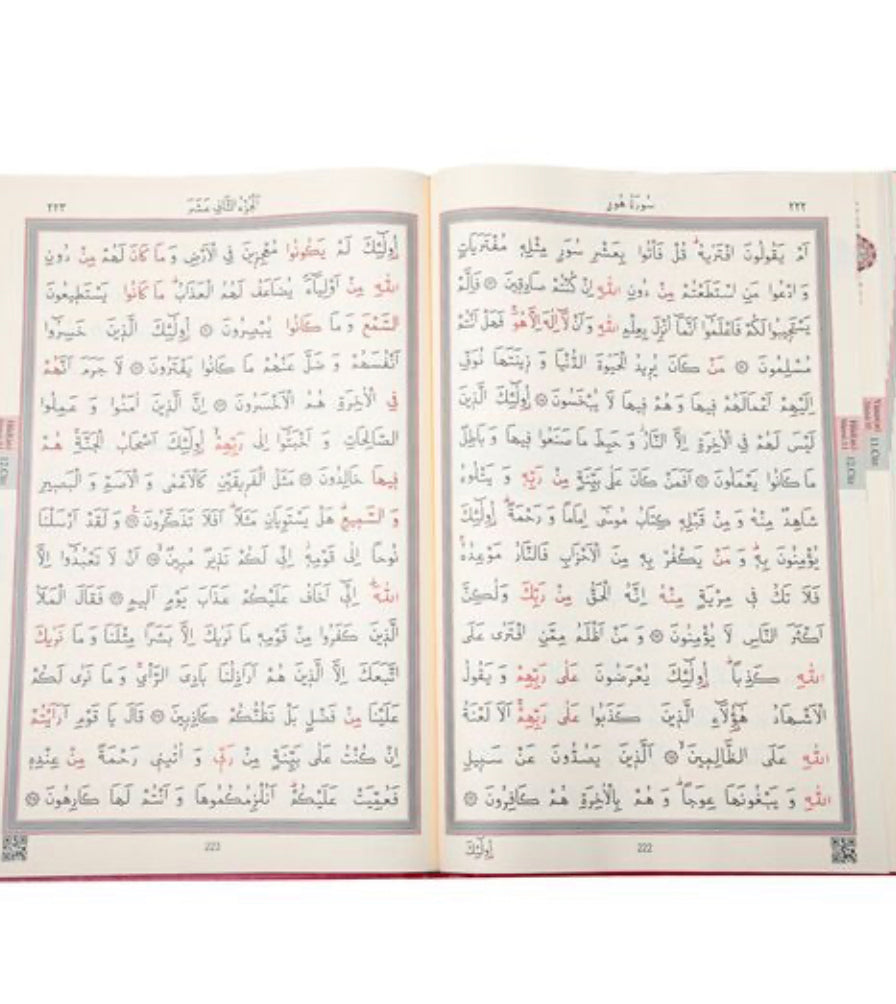 سُورَةُ هُودٍ ٢٢٢
اَمْ يَقُولُونَ افْتَرٰيهُ قُلْ فَأْتُوا بِعَشْرِ سُوَرٍ مِثْلِهٖ مُفْتَرَيَاتٍ
وَادْعُوا مَنِ اسْتَطَعْتُمْ مِنْ دُونِ اللّٰهِ اِنْ كُنْتُمْ صَادِقٖينَ ۞ فَاِلَّمْ
يَسْتَجٖيبُوا لَكُمْ فَاعْلَمُٓوا اَنَّمَٓا اُنْزِلَ بِعِلْمِ اللّٰهِ وَاَنْ لَٓا اِلٰهَ اِلَّا هُوَ فَهَلْ اَنْتُمْ
مُسْلِمُونَ ۞ مَنْ كَانَ يُرٖيدُ الْحَيٰوةَ الدُّنْيَا وَ زٖينَتَهَا نُوَفِّ
اِلَيْهِمْ اَعْمَالَهُمْ فٖيهَا وَ هُمْ فٖيهَا لَا يُبْخَسُونَ ۞ اُولٰٓئِكَ الَّذٖينَ
لَيْسَ لَهُمْ فِي الْاٰخِرَةِ اِلَّا النَّارُ وَ حَبِطَ مَا صَنَعُوا فٖيهَا وَ بَاطِلٌ
مَا كَانُوا يَعْمَلُونَ ۞ اَفَمَنْ كَانَ عَلٰى بَيِّنَةٍ مِنْ رَبِّهٖ وَ يَتْلُوهُ
شَاهِدٌ مِنْهُ وَ مِنْ قَبْلِهٖ كِتَابُ مُوسٰٓى اِمَامًا وَ رَحْمَةً اُولٰٓئِكَ
يُؤْمِنُونَ بِهٖ وَ مَنْ يَكْفُرْ بِهٖ مِنَ الْاَحْزَابِ فَالنَّارُ مَوْعِدُهُ
فَلَا تَكُ فٖي مِرْيَةٍ مِنْهُ اِنَّهُ الْحَقُّ مِنْ رَبِّكَ وَلٰكِنَّ
اَكْثَرَ النَّاسِ لَا يُؤْمِنُونَ ۞ وَ مَنْ اَظْلَمُ مِمَّنِ افْتَرٰى عَلَى
اللّٰهِ كَذِبًا اُولٰٓئِكَ يُعْرَضُونَ عَلٰى رَبِّهِمْ وَ يَقُولُ
الْاَشْهَادُ هٰٓؤُلَٓاءِ الَّذٖينَ كَذَبُوا عَلٰى رَبِّهِمْ اَلَا لَعْنَةُ
اللّٰهِ عَلَى الظَّالِمٖينَ ۞ اَلَّذٖينَ يَصُدُّونَ عَنْ سَبٖيلِ
اللّٰهِ وَ يَبْغُونَهَا عِوَجًا وَ هُمْ بِالْاٰخِرَةِ هُمْ كَافِرُونَ ۞
222 اُولٰٓئِكَ
اَلْجُزْءُ الثَّانٖي عَشَرَ ٢٢٣
اُولٰٓئِكَ لَمْ يَكُونُوا مُعْجِزٖينَ فِي الْاَرْضِ وَ مَا كَانَ لَهُمْ مِنْ دُونِ
اللّٰهِ مِنْ اَوْلِيَٓاءَ يُضَاعَفُ لَهُمُ الْعَذَابُ مَا كَانُوا يَسْتَطٖيعُونَ
السَّمْعَ وَ مَا كَانُوا يُبْصِرُونَ ۞ اُولٰٓئِكَ الَّذٖينَ خَسِرُٓوا
اَنْفُسَهُمْ وَ ضَلَّ عَنْهُمْ مَا كَانُوا يَفْتَرُونَ ۞ لَا جَرَمَ اَنَّهُمْ
فِي الْاٰخِرَةِ هُمُ الْاَخْسَرُونَ ۞ اِنَّ الَّذٖينَ اٰمَنُوا وَ عَمِلُوا
الصَّالِحَاتِ وَ اَخْبَتُٓوا اِلٰى رَبِّهِمْ اُولٰٓئِكَ اَصْحَابُ الْجَنَّةِ هُمْ
فٖيهَا خَالِدُونَ ۞ مَثَلُ الْفَرٖيقَيْنِ كَالْاَعْمٰى وَ الْاَصَمِّ وَ الْبَصٖيرِ
وَ السَّمٖيعِ هَلْ يَسْتَوِيَانِ مَثَلًا اَفَلَا تَذَكَّرُونَ ۞ وَ لَقَدْ اَرْسَلْنَا
نُوحًا اِلٰى قَوْمِهٖ اِنّٖي لَكُمْ نَذٖيرٌ مُبٖينٌ ۞ اَنْ لَا تَعْبُدُٓوا اِلَّا
اللّٰهَ اِنّٖٓي اَخَافُ عَلَيْكُمْ عَذَابَ يَوْمٍ اَلٖيمٍ ۞ فَقَالَ الْمَلَاُ
الَّذٖينَ كَفَرُوا مِنْ قَوْمِهٖ مَا نَرٰيكَ اِلَّا بَشَرًا مِثْلَنَا وَ مَا نَرٰيكَ
اتَّبَعَكَ اِلَّا الَّذٖينَ هُمْ اَرَاذِلُنَا بَادِيَ الرَّأْيِ وَ مَا نَرٰى لَكُمْ
عَلَيْنَا مِنْ فَضْلٍ بَلْ نَظُنُّكُمْ كَاذِبٖينَ ۞ قَالَ يَا قَوْمِ اَرَاَيْتُمْ
اِنْ كُنْتُ عَلٰى بَيِّنَةٍ مِنْ رَبّٖي وَ اٰتٰينٖي رَحْمَةً مِنْ عِنْدِهٖ
فَعُمِّيَتْ عَلَيْكُمْ اَنُلْزِمُكُمُوهَا وَ اَنْتُمْ لَهَا كَارِهُونَ ۞
223